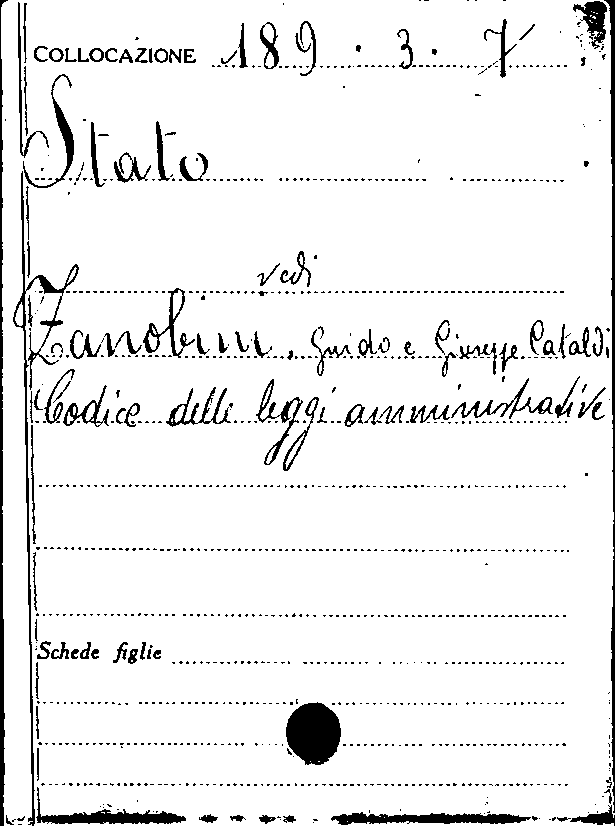 COLLOCAZIONE 189 · 3 · 7
Stato
vedi
Zanobini, Guido e Giuseppe Cataldi
Codice delle leggi amministrative
Schede figlie